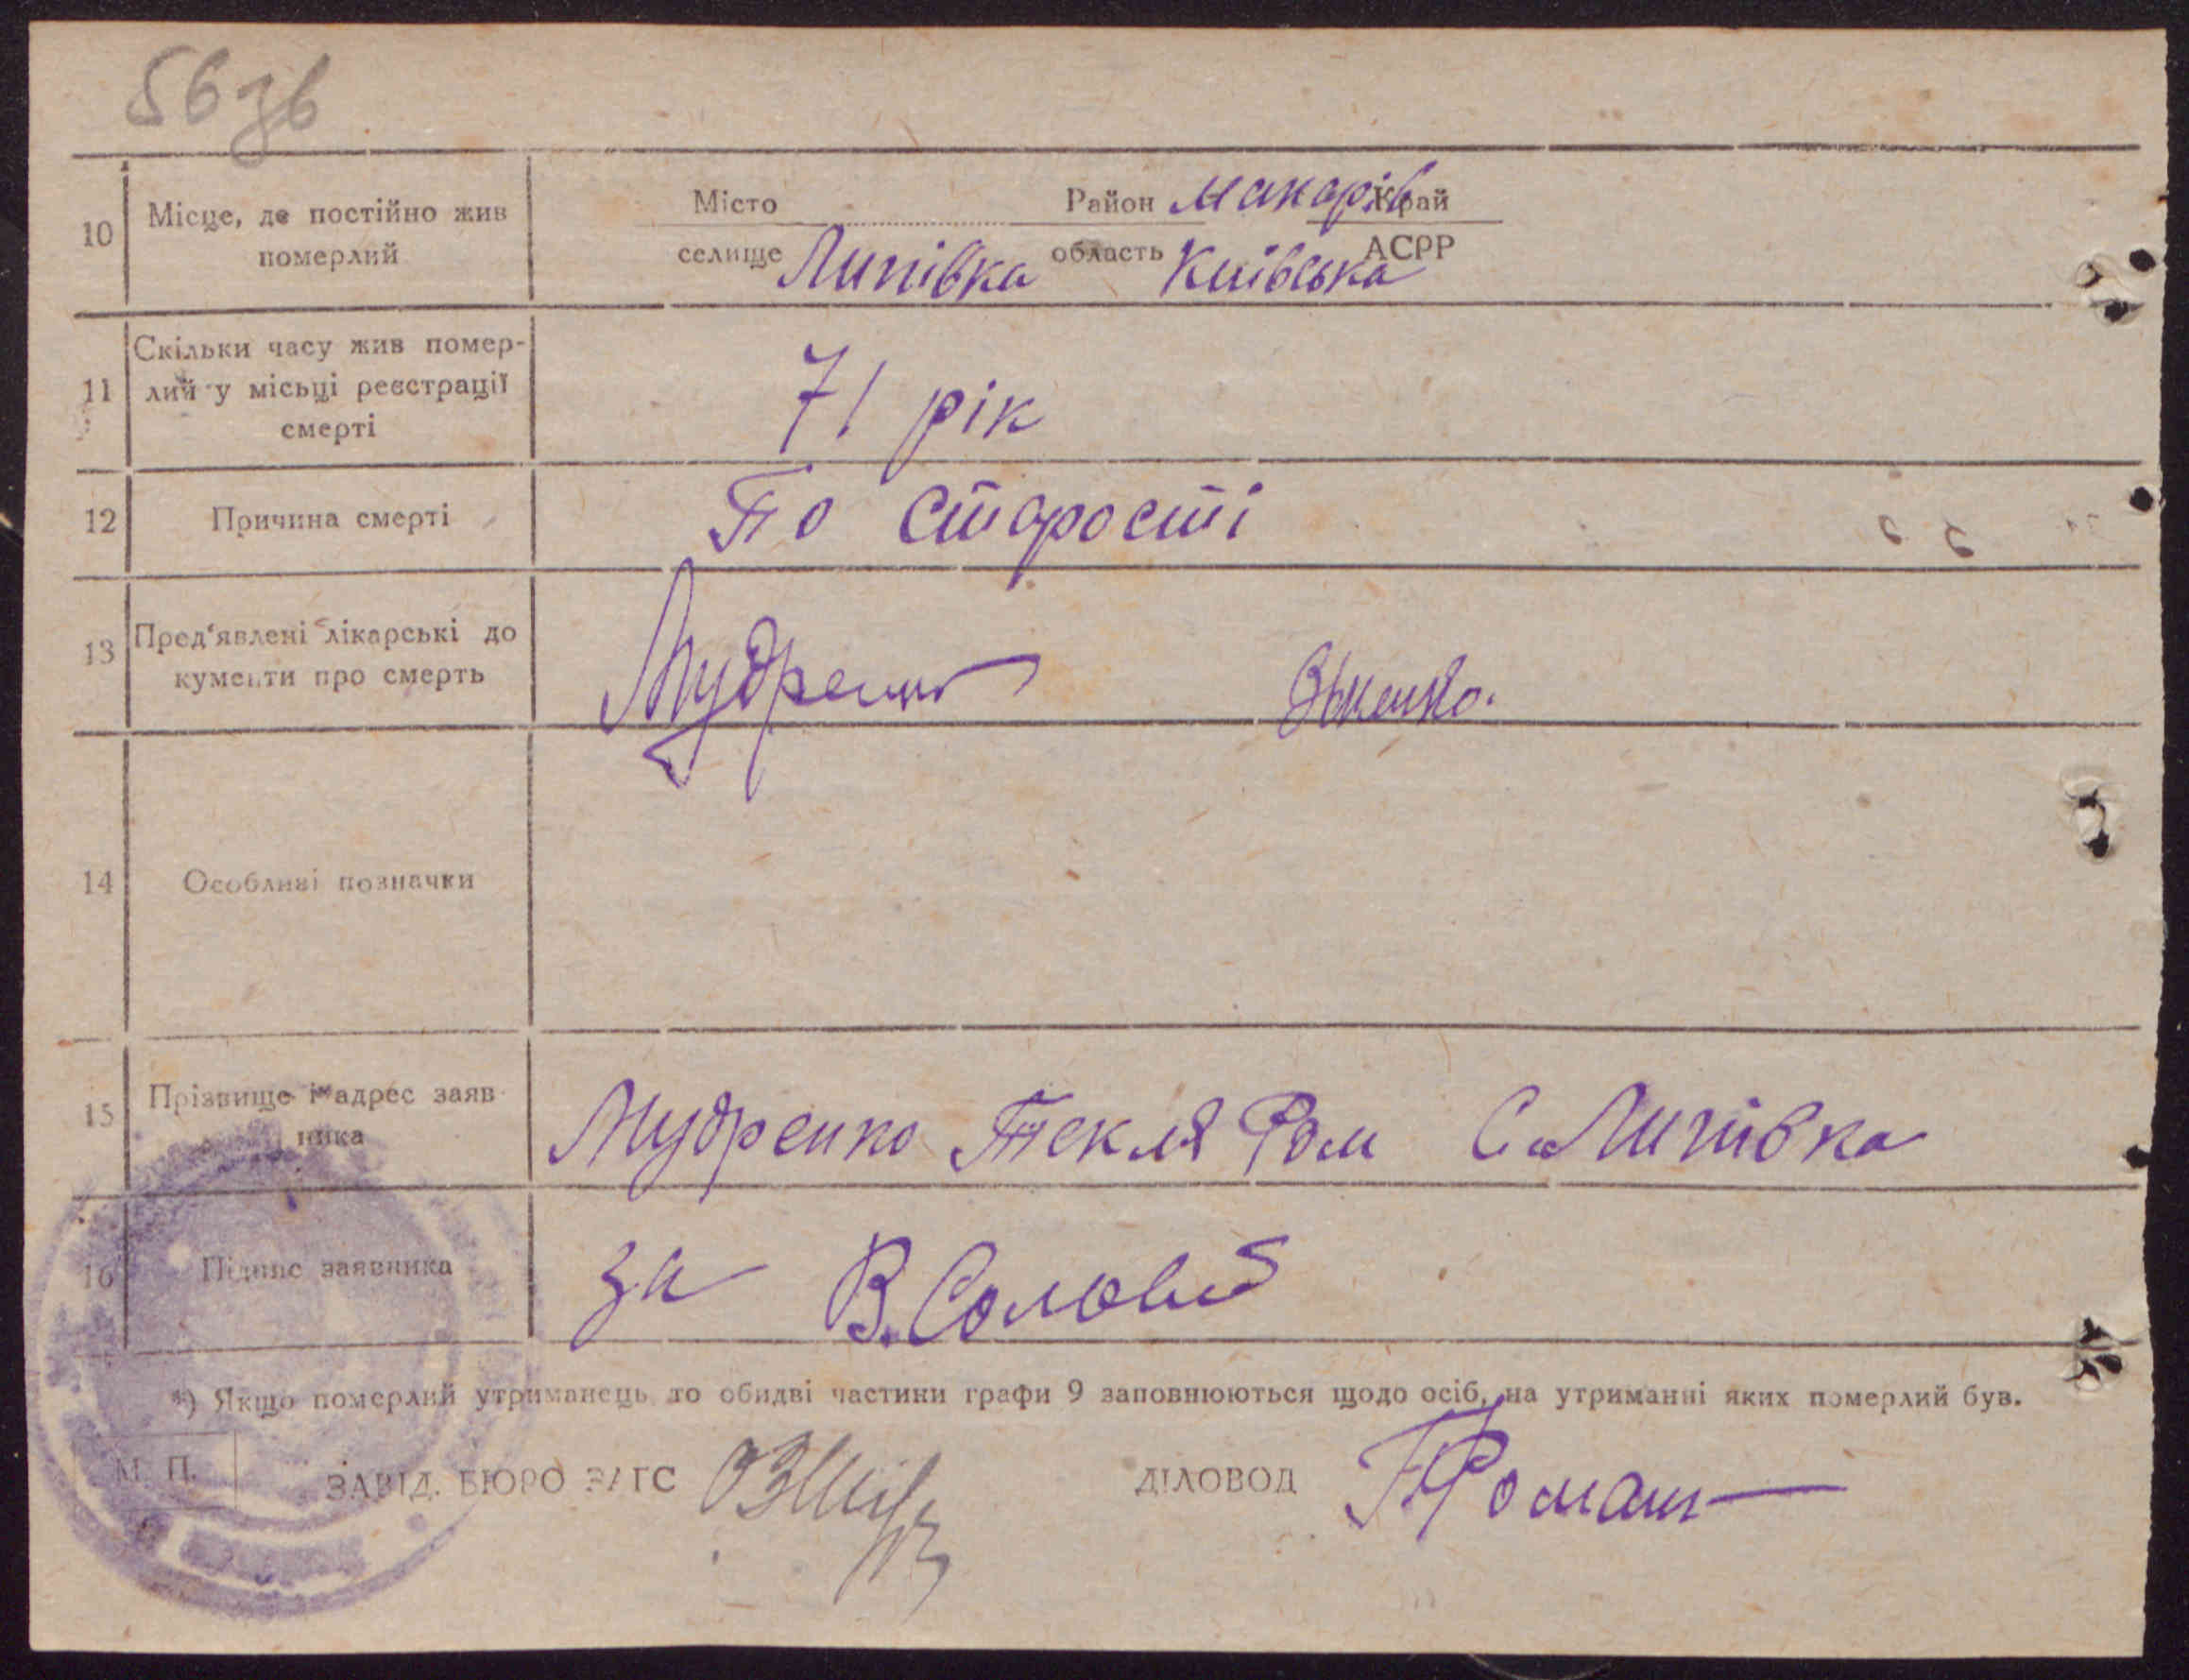 56 зв
10 Місце, де постійно жив померлий
Місто Район Макарів Край
селище Липівка область Київська АСРР
11 Скільки часу жив помер-
лий у місьці реєстрації
смерті
71 рік
12 Причина смерті По старості
13 Пред'явлені лікарські до
кументи про смерть
Мудренко
14 Особливі позначки
15 Прізвище і адрес заяв
ника
Мудренко Текля Ром С. Липівка
16 Підпис заявника за В. Соловей
*) Якщо померлий утриманець то обидві частини графи 9 заповнюються щодо осіб, на утриманні яких померлий був.
М. П. ЗАВІД. БЮРО ЗАГС ДІЛОВОД